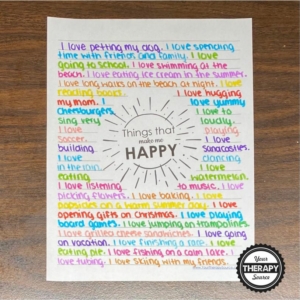 I love petting my dog. I love spending
time with friends and family. I love
going to school. I love swimming at the
beach. I love eating ice cream in the summer.
I love long walks on the beach at night. I love
reading books. I love hugging
my mom. I love yummy
cheesburgers. I love to
sing very loudly.
I love playing
soccer. I love
building sandcastles.
I love dancing
in the rain. I love
eating watermelon.
I love listening to music. I love
picking flowers. I love baking. I love
popsicles on a warm summer day. I love
opening gifts on Christmas. I love playing
board games. I love jumping on trampolines.
I love grilled cheese sandwiches. I love going
on vacation. I love finishing a race. I love
eating pie. I love fishing on a calm lake. I
love tubing. I love skiing with my friends.
Things that
make me
HAPPY
Your
THERAPY
Source